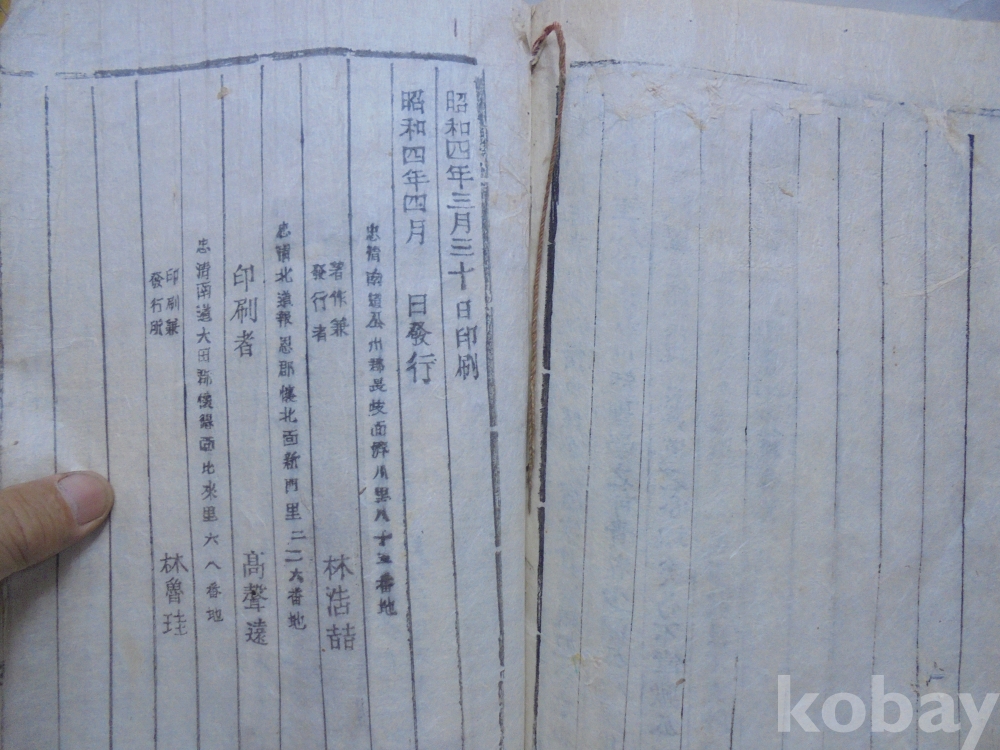 昭和四年三月三十日印刷
昭和四年四月 日發行
忠淸南道公州郡 面 川里八十五番地
著作兼
發行者 林浩喆
忠淸北道報恩郡懷北面新門里二二六番地
印刷者 高聲遠
忠淸南道大田郡懷德面比來里六八番地
印刷兼
發行所 林魯珪
kobay